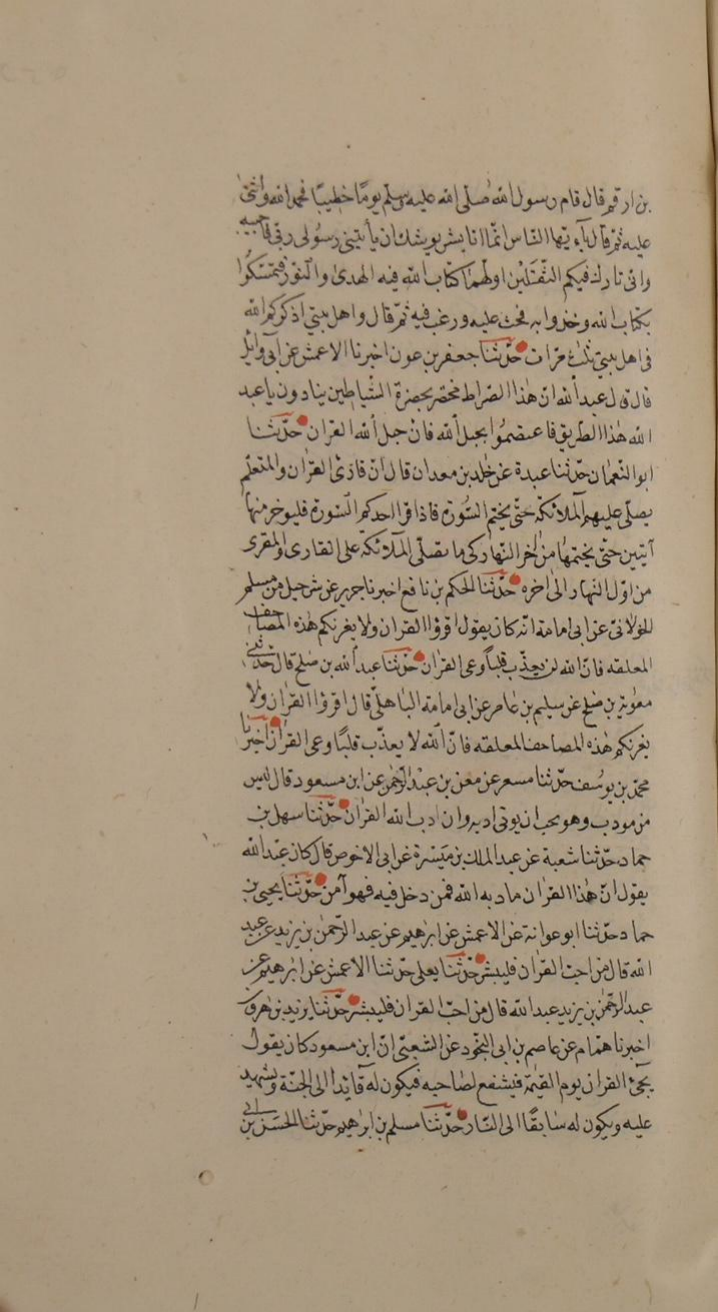 بن ارقم قال قام رسول الله صلى الله عليه وسلم يومًا خطيبًا فحمد الله واثنى
عليه ثم قال يآء يّها الناس انّما انا بشر يوشك ان يأتينى رسول ربى فاجيبه
وانى تارك فيكم الثّقلين اولهما كتاب الله فيه الهدىٰ والنّور فتمسّكوا
بكتاب الله وخذوا به فحث عليه ورغب فيه ثمّ قال واهل بيتى اذكركم الله
فى اهل بيتى ثلث مرّات حدّثنا جعفر بن عون اخبرنا الاعمش عن ابى وائل
قال قال عبد الله انّ هٰذا الصّراط محتضر يحضرة الشّياطين ينادون يا عبد
الله هٰذا الطّريق فاعتصمُوا بحبل الله فانّ حبل الله القران حدّثنا
ابو النّعمان حدّثنا عبدة عن خٰلد بن معدان قال انّ قارئ القران والمتعلّم
يصلّى عليهم الملائكة حتّى يختم السّورة فاذا اقرا احدكم السّورة فليوخر منها
آيتين حتّى يختمها من اٰخر النّهار كى ما يصلّى الملائكة على القارى والمقرى
من اوّل النّهار الى اٰخره حدّثنا الحكم بن نافع اخبرنا جرير عن شرحبيل بن مسلم
الخولانى عن ابى امامة انّه كان يقول اقرؤا القران ولا يغرنكم هٰذه المصاحف
المعلقه فانّ الله لن يعذّب قلبًا وعى القران حدّثنا عبد الله بن صٰلح قال حدّثنى
معٰوية بن صٰلح عن سليم بن عامر عن ابى امامة الباهلّى قال اقرؤا القران ولا
يغرنكم هٰذه المصاحف المعلقه فانّ الله لا يعذّب قلبًا وعى القران اخبرنا
محمّد بن يوسُف حدّثنا مسعر عن معن بن عبد الرّحمٰن عن ابن مسعود قال ليس
من مودب وهو يحب ان يوتى ادبه وان ادب الله القران حدّثنا سهل بن
حماد حدّثنا شعبة عن عبد الملك بن ميسرة عن ابى الاحوص قال كان عبد الله
يقول انّ هٰذا القران مادبه الله فمن دخل فيه فهو آمن حدّثنا يحيى بن
حماد حدّثنا ابو عوانة عن الاعمش عن ابرٰهيم عن عبد الرّحمٰن بن يزيد عن عبد
الله قال من احبّ القران فليبشر حدّثنا يعلى حدّثنا الاعمش عن ابرٰهيم عن
عبد الرّحمٰن بن يزيد عبد الله قال من احبّ القران فليبشر حدّثنا يزيد بن هٰرون
اخبرنا همّام عن عاصم بن ابى النّجود عن الشعبىّ انّ ابن مسعود كان يقول
يجئ القران يوم القيٰمة فيشفع لصاحبه فيكون له قائدا الى الجنّة ويشهد
عليه ويكون له سٰابقًا الى النّار حدّثنا مسلم بن ابرٰهيم حدّثنا الحسن بن ابى